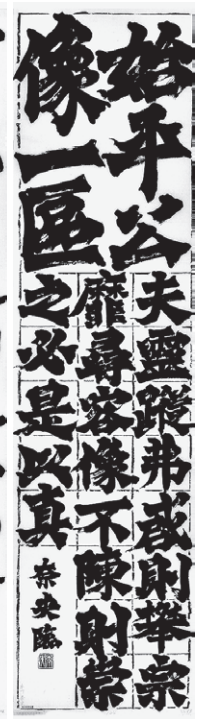 始平公
像一區
夫靈蹤弗啟則攀宗
靡尋容像不陳則崇
之必是以真
崇央臨